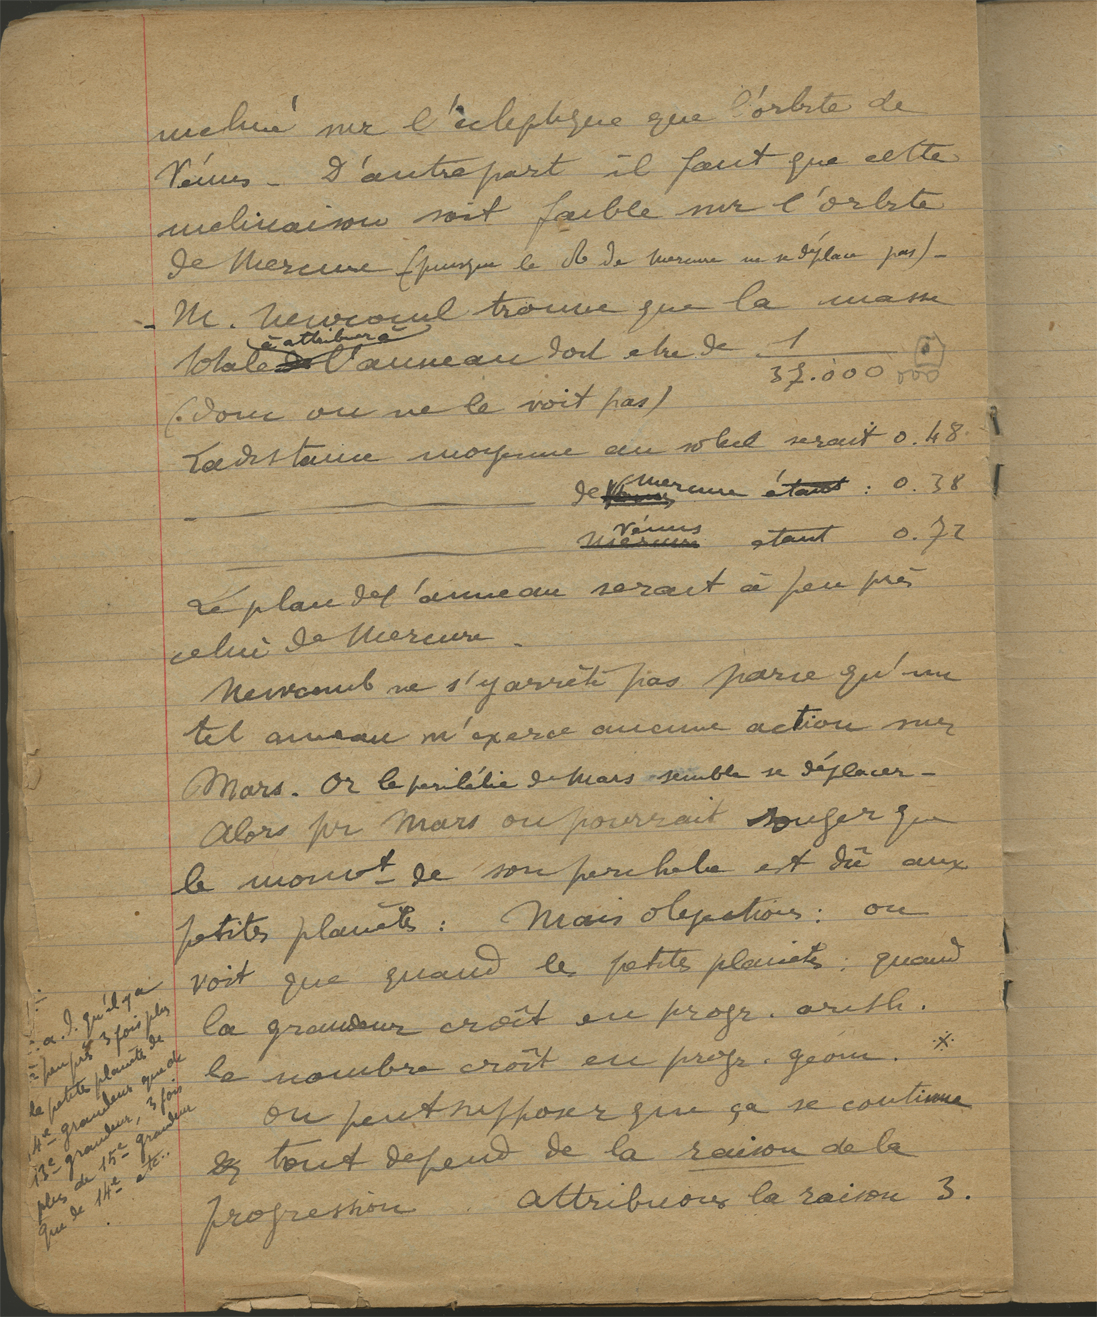 incliné sur l'écleptique que l'orbite de
Vénus - D'autre part il faut que cette
inclinaison soit faible sur l'orbite
de Mercure (puisque le de Mercure ne se déplace pas) -
- M. Newcomb trouve que la masse
à attribuer à
totale de l'anneau doit etre de 1
37.000 000
(donc on ne le voit pas)
La distance moyenne au soleil serait 0.48
de Mercure étant : 0.38
Vénus
Mercure etant 0.72
Le plan de l'anneau serait à peu près
celui de Mercure -
Newcomb ne s'y arrête pas parce qu'un
tel anneau n'exerce aucune action sur
Mars. Or le perihélie de Mars semble se déplacer -
Alors pr Mars on pourrait songer que
le mouvt de son perihelie est dû aux
petites planètes : Mais objections : on
voit que quand les petites planètes : quand
la grandeur croît en progr. arith.
le nombre croît en progr. géom. ※
On peut supposer que ça se continue
tout depend de la raison de la
progression . Attribuons la raison 3.
※
c. a. d. qu'il y a
à peu près 3 fois plus
de petites planètes de
14e grandeur que de
13e grandeur, 3 fois
plus de 15e grandeur
que de 14e etc..